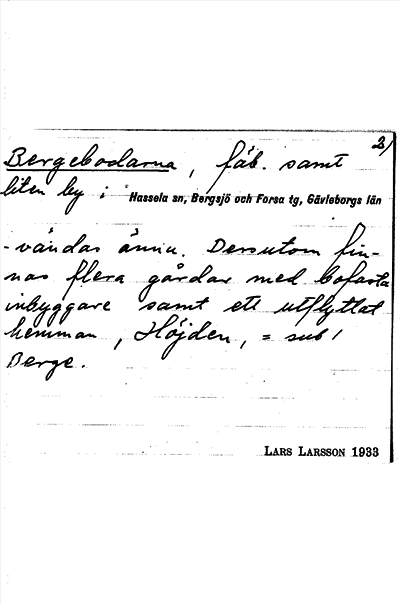 2)
Bergebodarna, fäb. samt
liten by i Hassela sn, Bergsjö och Forsa tg, Gävleborgs län
-vändas ännu. Dessutom fin-
nas flera gårdar med bofasta
inbyggare samt ett utflyttat
hemman, Höjden, = sub 1
Berge.
LARS LARSSON 1933